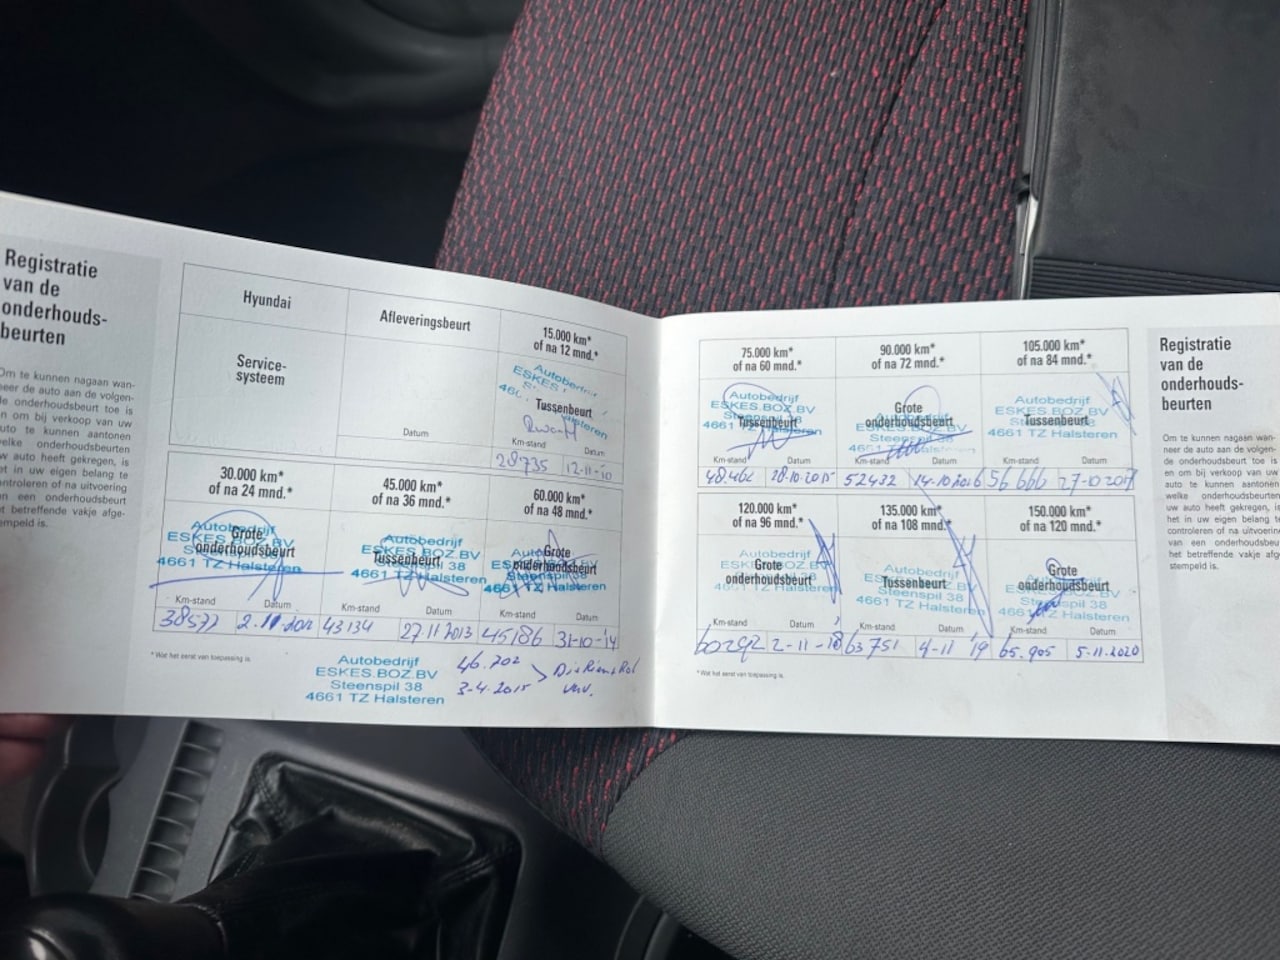 Registratie
van de
onderhouds-
beurten
Om te kunnen nagaan wan-
neer de auto aan de volgen-
de onderhoudsbeurt toe is
en om bij verkoop van uw
auto te kunnen aantonen
welke onderhoudsbeurten
uw auto heeft gekregen, is
het in uw eigen belang te
controleren of na uitvoering
van een onderhoudsbeurt
het betreffende vakje afge-
stempeld is.
Hyundai
Afleveringsbeurt
15.000 km*
of na 12 mnd.*
Service-
systeem
Datum
Autobedrijf
ESKES
Tussenbeurt
Halsteren
Km-stand
Datum
28735
12-11-10
30.000 km*
of na 24 mnd.*
45.000 km*
of na 36 mnd.*
60.000 km*
of na 48 mnd.*
Autobedrijf
ESKES.BOZ.BV
4661 TZ Halsteren
Grote
onderhoudsbeurt
Autobedrijf
ESKES.BOZ.BV
4661 TZ Halsteren
Tussenbeurt
Autobedrijf
ESKES.BOZ.BV
Steenspil 38
4661 TZ Halsteren
Grote
onderhoudsbeurt
Km-stand
Datum
Km-stand
Datum
Km-stand
Datum
43134
27 11 2013
45186
31-10-14
* Wat het eerst van toepassing is.
Autobedrijf
ESKES.BOZ.BV
Steenspil 38
4661 TZ Halsteren
46.202
3-4.2015
75.000 km*
of na 60 mnd.*
90.000 km*
of na 72 mnd.*
105.000 km*
of na 84 mnd.*
Autobedrijf
ESKES.BOZ.BV
Steenspil 38
4661 TZ Halsteren
Tussenbeurt
Grote
onderhoudsbeurt
Autobedrijf
ESKES.BOZ.BV
Steenspil 38
4661 TZ Halsteren
Tussenbeurt
Km-stand
Datum
Km-stand
Datum
Km-stand
Datum
48.462
28.10.2015
52432
14-10-2016
56 666
27-10 2017
120.000 km*
of na 96 mnd.*
135.000 km*
of na 108 mnd.*
150.000 km*
of na 120 mnd.*
Autobedrijf
ESKES.BOZ.BV
Steenspil 38
4661 TZ Halsteren
Grote
onderhoudsbeurt
Autobedrijf
ESKES.BOZ.BV
Steenspil 38
4661 TZ Halsteren
Tussenbeurt
Autobedrijf
ESKES.BOZ.BV
Steenspil 38
4661 TZ Halsteren
Grote
onderhoudsbeurt
Km-stand
Datum
Km-stand
Datum
Km-stand
Datum
60292
2-11-18
63751
4-11 '19
65.905
5.11.2020
* Wat het eerst van toepassing is.
Registratie
van de
onderhouds-
beurten
Om te kunnen nagaan wan-
neer de auto aan de volgen-
de onderhoudsbeurt toe is
en om bij verkoop van uw
auto te kunnen aantonen
welke onderhoudsbeurten
uw auto heeft gekregen, is
het in uw eigen belang te
controleren of na uitvoering
van een onderhoudsbeurt
het betreffende vakje afge-
stempeld is.